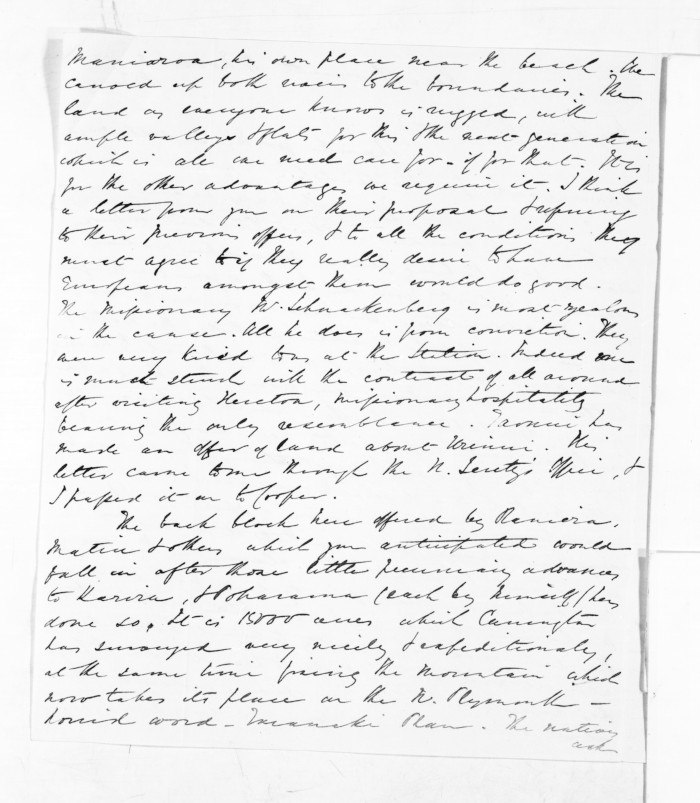 his own place near the beach. We
canoed up both rivers to the boundaries. The
land as everyone knows is rugged, with
ample valleys & flats for this & the next generation
which is all we need care for - if for that. It is
for the other advantages we require it. I think
a letter from you on their proposal & refering
to their previous offers, & to all the conditions they
must agree to if they really desire to have
Europeans amongst them would do good.
The Missionary Mr. Schnackenberg is most zealous
in the cause. All he does is from conviction. They
were very kind to us at the Station. Indeed one
is much struck with the contrast of all around
after visiting missionary hospitality
bearing the only resemblance. has
made an offer of land about His
letter came to me through the N. Secty's Office, &
I passed it on to Cooper.
The back block here offered by
Matiu & others which you anticipated would
fall in after those little pecuniary advances
to & (each by himself) has
done so. It is 15000 acres which Carrington
has surveyed very nicely & expeditionaly,
at the same time fixing the Mountain which
now takes its place on the N. Plymouth -
horrid word - Taranaki Plan. The natives
ask